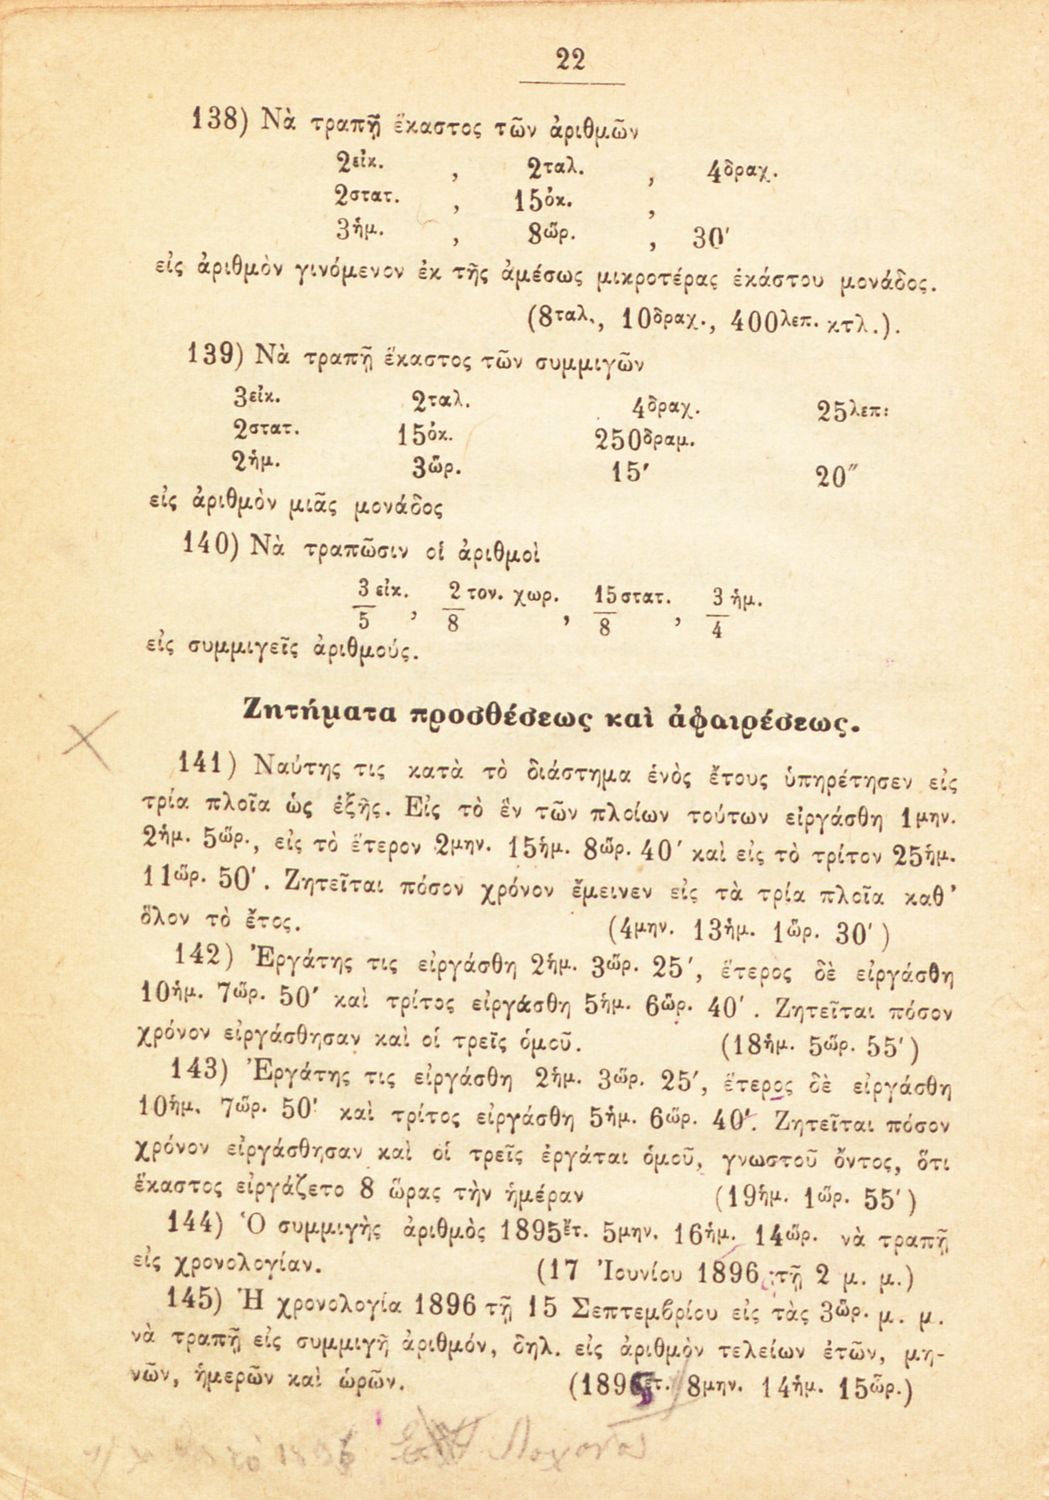 22
138) Νὰ τραπῇ ἕκαστος τῶν ἀριθμῶν
2εἰκ. , 2ταλ. , 4δραχ.
2στατ. , 15ὀκ. ,
3ἡμ. , 8ὧρ. , 30′
εἰς ἀριθμὸν γινόμενον ἐκ τῆς ἀμέσως μικροτέρας ἑκάστου μονάδος.
(8ταλ., 10δραχ., 400λεπ. κτλ.).
139) Νὰ τραπῇ ἕκαστος τῶν συμμιγῶν
3εἰκ. 2ταλ. 4δραχ. 25λεπ:
2στατ. 15ὀκ. 250δραμ.
2ἡμ. 3ὧρ. 15′ 20″
εἰς ἀριθμὸν μιᾶς μονάδος
140) Νὰ τραπῶσιν οἱ ἀριθμοὶ
3/5 εἰκ. , 2/8 τον. χωρ. , 15/8 στατ. , 3/4 ἡμ.
εἰς συμμιγεῖς ἀριθμούς.
Ζητήματα προσθέσεως καὶ ἀφαιρέσεως.
141) Ναύτης τις κατὰ τὸ διάστημα ἑνὸς ἔτους ὑπηρέτησεν εἰς
τρία πλοῖα ὡς ἑξῆς. Εἰς τὸ ἓν τῶν πλοίων τούτων εἰργάσθη 1μην.
2ἡμ. 5ὧρ., εἰς τὸ ἕτερον 2μην. 15ἡμ. 8ὧρ. 40′ καὶ εἰς τὸ τρίτον 25ἡμ.
11ὧρ. 50′. Ζητεῖται πόσον χρόνον ἔμεινεν εἰς τὰ τρία πλοῖα καθ’
ὅλον τὸ ἔτος. (4μην. 13ἡμ. 1ὧρ. 30′)
142) Ἐργάτης τις εἰργάσθη 2ἡμ. 3ὧρ. 25′, ἕτερος δὲ εἰργάσθη
10ἡμ. 7ὧρ. 50′ καὶ τρίτος εἰργάσθη 5ἡμ. 6ὧρ. 40′. Ζητεῖται πόσον
χρόνον εἰργάσθησαν καὶ οἱ τρεῖς ὁμοῦ. (18ἡμ. 5ὧρ. 55′)
143) Ἐργάτης τις εἰργάσθη 2ἡμ. 3ὧρ. 25′, ἕτερος δὲ εἰργάσθη
10ἡμ. 7ὧρ. 50′ καὶ τρίτος εἰργάσθη 5ἡμ. 6ὧρ. 40′. Ζητεῖται πόσον
χρόνον εἰργάσθησαν καὶ οἱ τρεῖς ἐργάται ὁμοῦ, γνωστοῦ ὄντος, ὅτι
ἕκαστος εἰργάζετο 8 ὥρας τὴν ἡμέραν (19ἡμ. 1ὧρ. 55′)
144) Ὁ συμμιγὴς ἀριθμὸς 1895ἔτ. 5μην. 16ἡμ. 14ὧρ. νὰ τραπῇ
εἰς χρονολογίαν. (17 Ἰουνίου 1896 τῇ 2 μ. μ.)
145) Ἡ χρονολογία 1896 τῇ 15 Σεπτεμβρίου εἰς τὰς 3ὧρ. μ. μ.
νὰ τραπῇ εἰς συμμιγῆ ἀριθμόν, δηλ. εἰς ἀριθμὸν τελείων ἐτῶν, μη-
νῶν, ἡμερῶν καὶ ὡρῶν. (1895ἔτ. 8μην. 14ἡμ. 15ὧρ.)